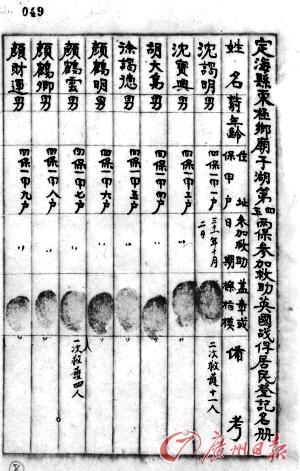 049
定海縣東極鄉廟子湖第四五兩保參加救助英國战俘居民登記名册
姓名 齡年 住址 保甲户 參加救助日期 盖章或捺指模 備考
沈謁明 男 四保一甲一户 三十一年十月二日 二次救護十一人
沈寶興 男 四保一甲三户 〃
胡大為 男 四保一甲四户 〃
徐謁德 男 四保一甲五户 〃
顏鶴明 男 四保一甲六户 〃
顏鶴雲 男 四保一甲七户 〃 一次救護四人
顏鶴卿 男 四保一甲八户 〃
顏財運 男 四保一甲九户 〃
廣州日报